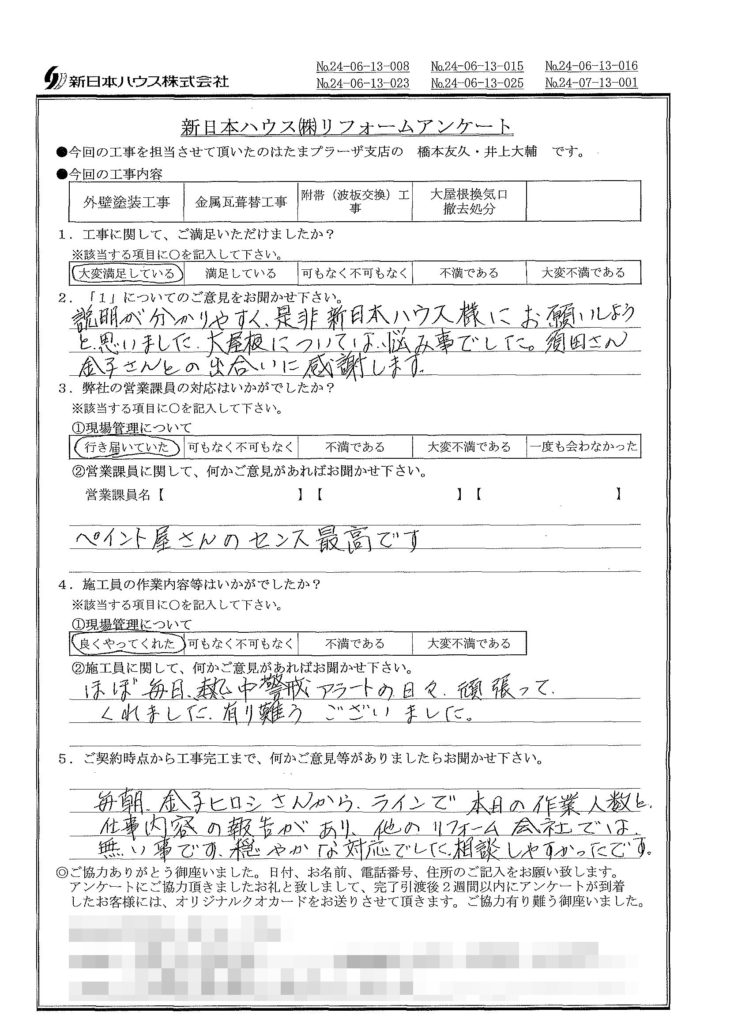 新日本ハウス株式会社
№24-06-13-008 №24-06-13-015 №24-06-13-016
№24-06-13-023 №24-06-13-025 №24-07-13-001
新日本ハウス㈱リフォームアンケート
●今回の工事を担当させて頂いたのはたまプラーザ支店の 橋本友久・井上大輔 です。
●今回の工事内容
外壁塗装工事 金属瓦葺替工事 附帯（波板交換）工事 大屋根換気口撤去処分
１．工事に関して、ご満足いただけましたか？
※該当する項目に○を記入して下さい。
大変満足している 満足している 可もなく不可もなく 不満である 大変不満である
２．「１」についてのご意見をお聞かせ下さい。
説明が分かりやすく、是非新日本ハウス様にお願いしよう
と思いました。大屋根については、悩み事でした。須田さん
金子さんとの出合いに感謝します。
３．弊社の営業課員の対応はいかがでしたか？
※該当する項目に○を記入して下さい。
①現場管理について
行き届いていた 可もなく不可もなく 不満である 大変不満である 一度も会わなかった
②営業課員に関して、何かご意見があればお聞かせ下さい。
営業課員名【 】【 】【 】
ペイント屋さんのセンス最高です
４．施工員の作業内容等はいかがでしたか？
※該当する項目に○を記入して下さい。
①現場管理について
良くやってくれた 可もなく不可もなく 不満である 大変不満である
②施工員に関して、何かご意見があればお聞かせ下さい。
ほぼ毎日、熱中警戒アラートの日々、頑張って、
くれました。有り難うございました。
５．ご契約時点から工事完工まで、何かご意見等がありましたらお聞かせ下さい。
毎朝、金子ヒロシさんから、ラインで本日の作業人数と、
仕事内容の報告があり、他のリフォーム会社では、
無い事です。穏やかな対応でした。相談しやすかったです。
◎ご協力ありがとう御座いました。日付、お名前、電話番号、住所のご記入をお願い致します。
アンケートにご協力頂きましたお礼と致しまして、完了引渡後２週間以内にアンケートが到着
したお客様には、オリジナルクオカードをお送りさせて頂きます。ご協力有り難う御座いました。